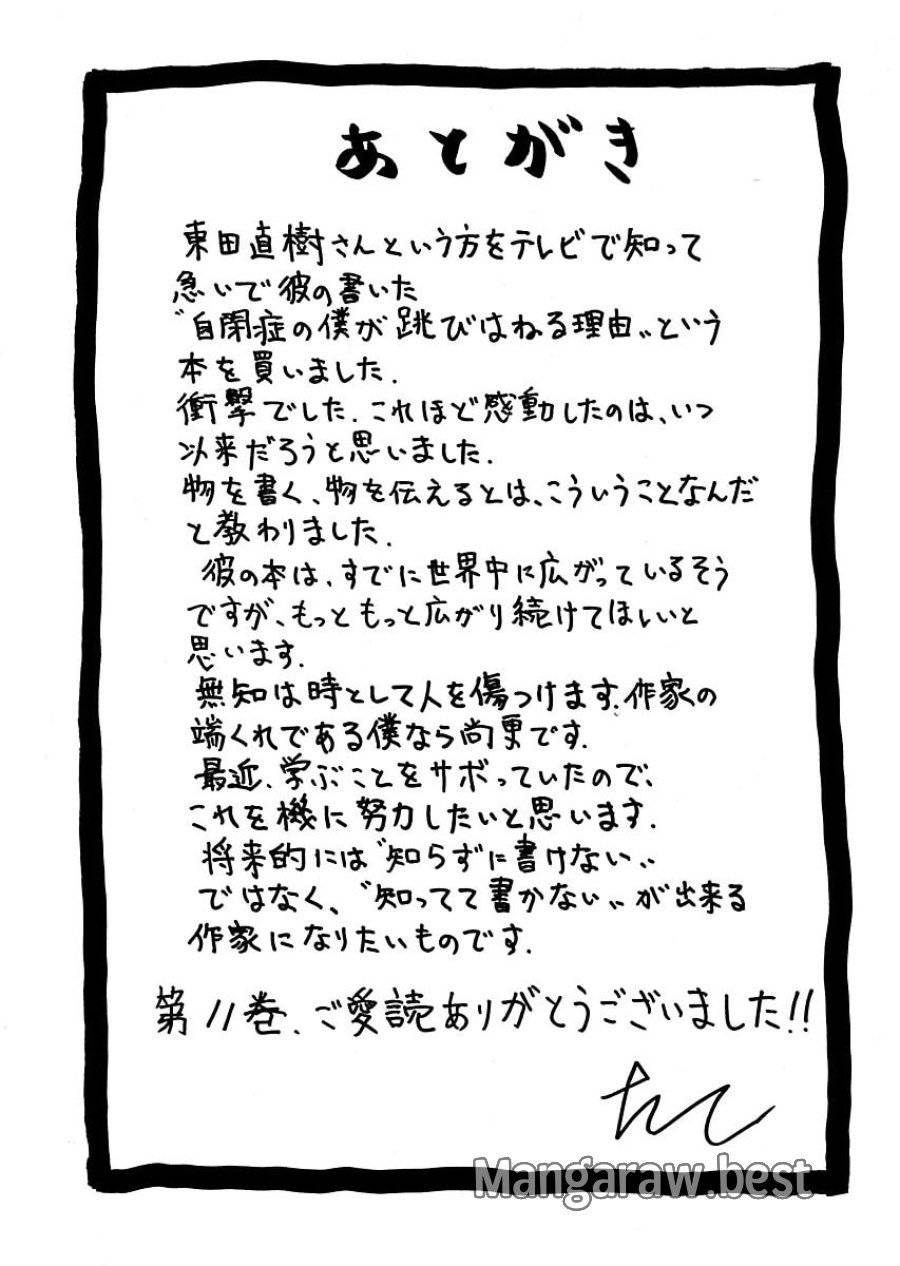 あとがき
東田直樹さんという方をテレビで知って
急いで彼の書いた
〝自閉症の僕が跳びはねる理由〟という
本を買いました.
衝撃でした.これほど感動したのは、いつ
以来だろうと思いました.
物を書く、物を伝えるとは、こういうことなんだ
と教わりました.
彼の本は、すでに世界中に広がっているそう
ですが、もっともっと広がり続けてほしいと
思います.
無知は時として人を傷つけます.作家の
端くれである僕なら尚更です.
最近、学ぶことをサボっていたので、
これを機に努力したいと思います.
将来的には〝知らずに書けない〟
ではなく、〝知ってて書かない〟が出来る
作家になりたいものです.
第11巻、ご愛読ありがとうございました!!
Mangaraw.best